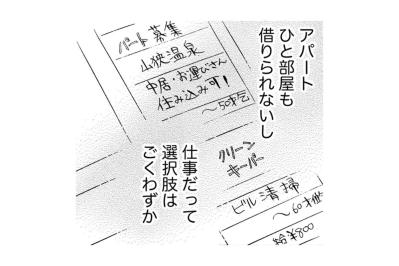 アパート
ひと部屋も
借りられないし
パート募集
山狭温泉
中居・お運びさん
住み込みす!
〜50才迄
クリーン
キーパー
ビル清掃
〜60才位
給¥800
仕事だって
選択肢は
ごくわずか